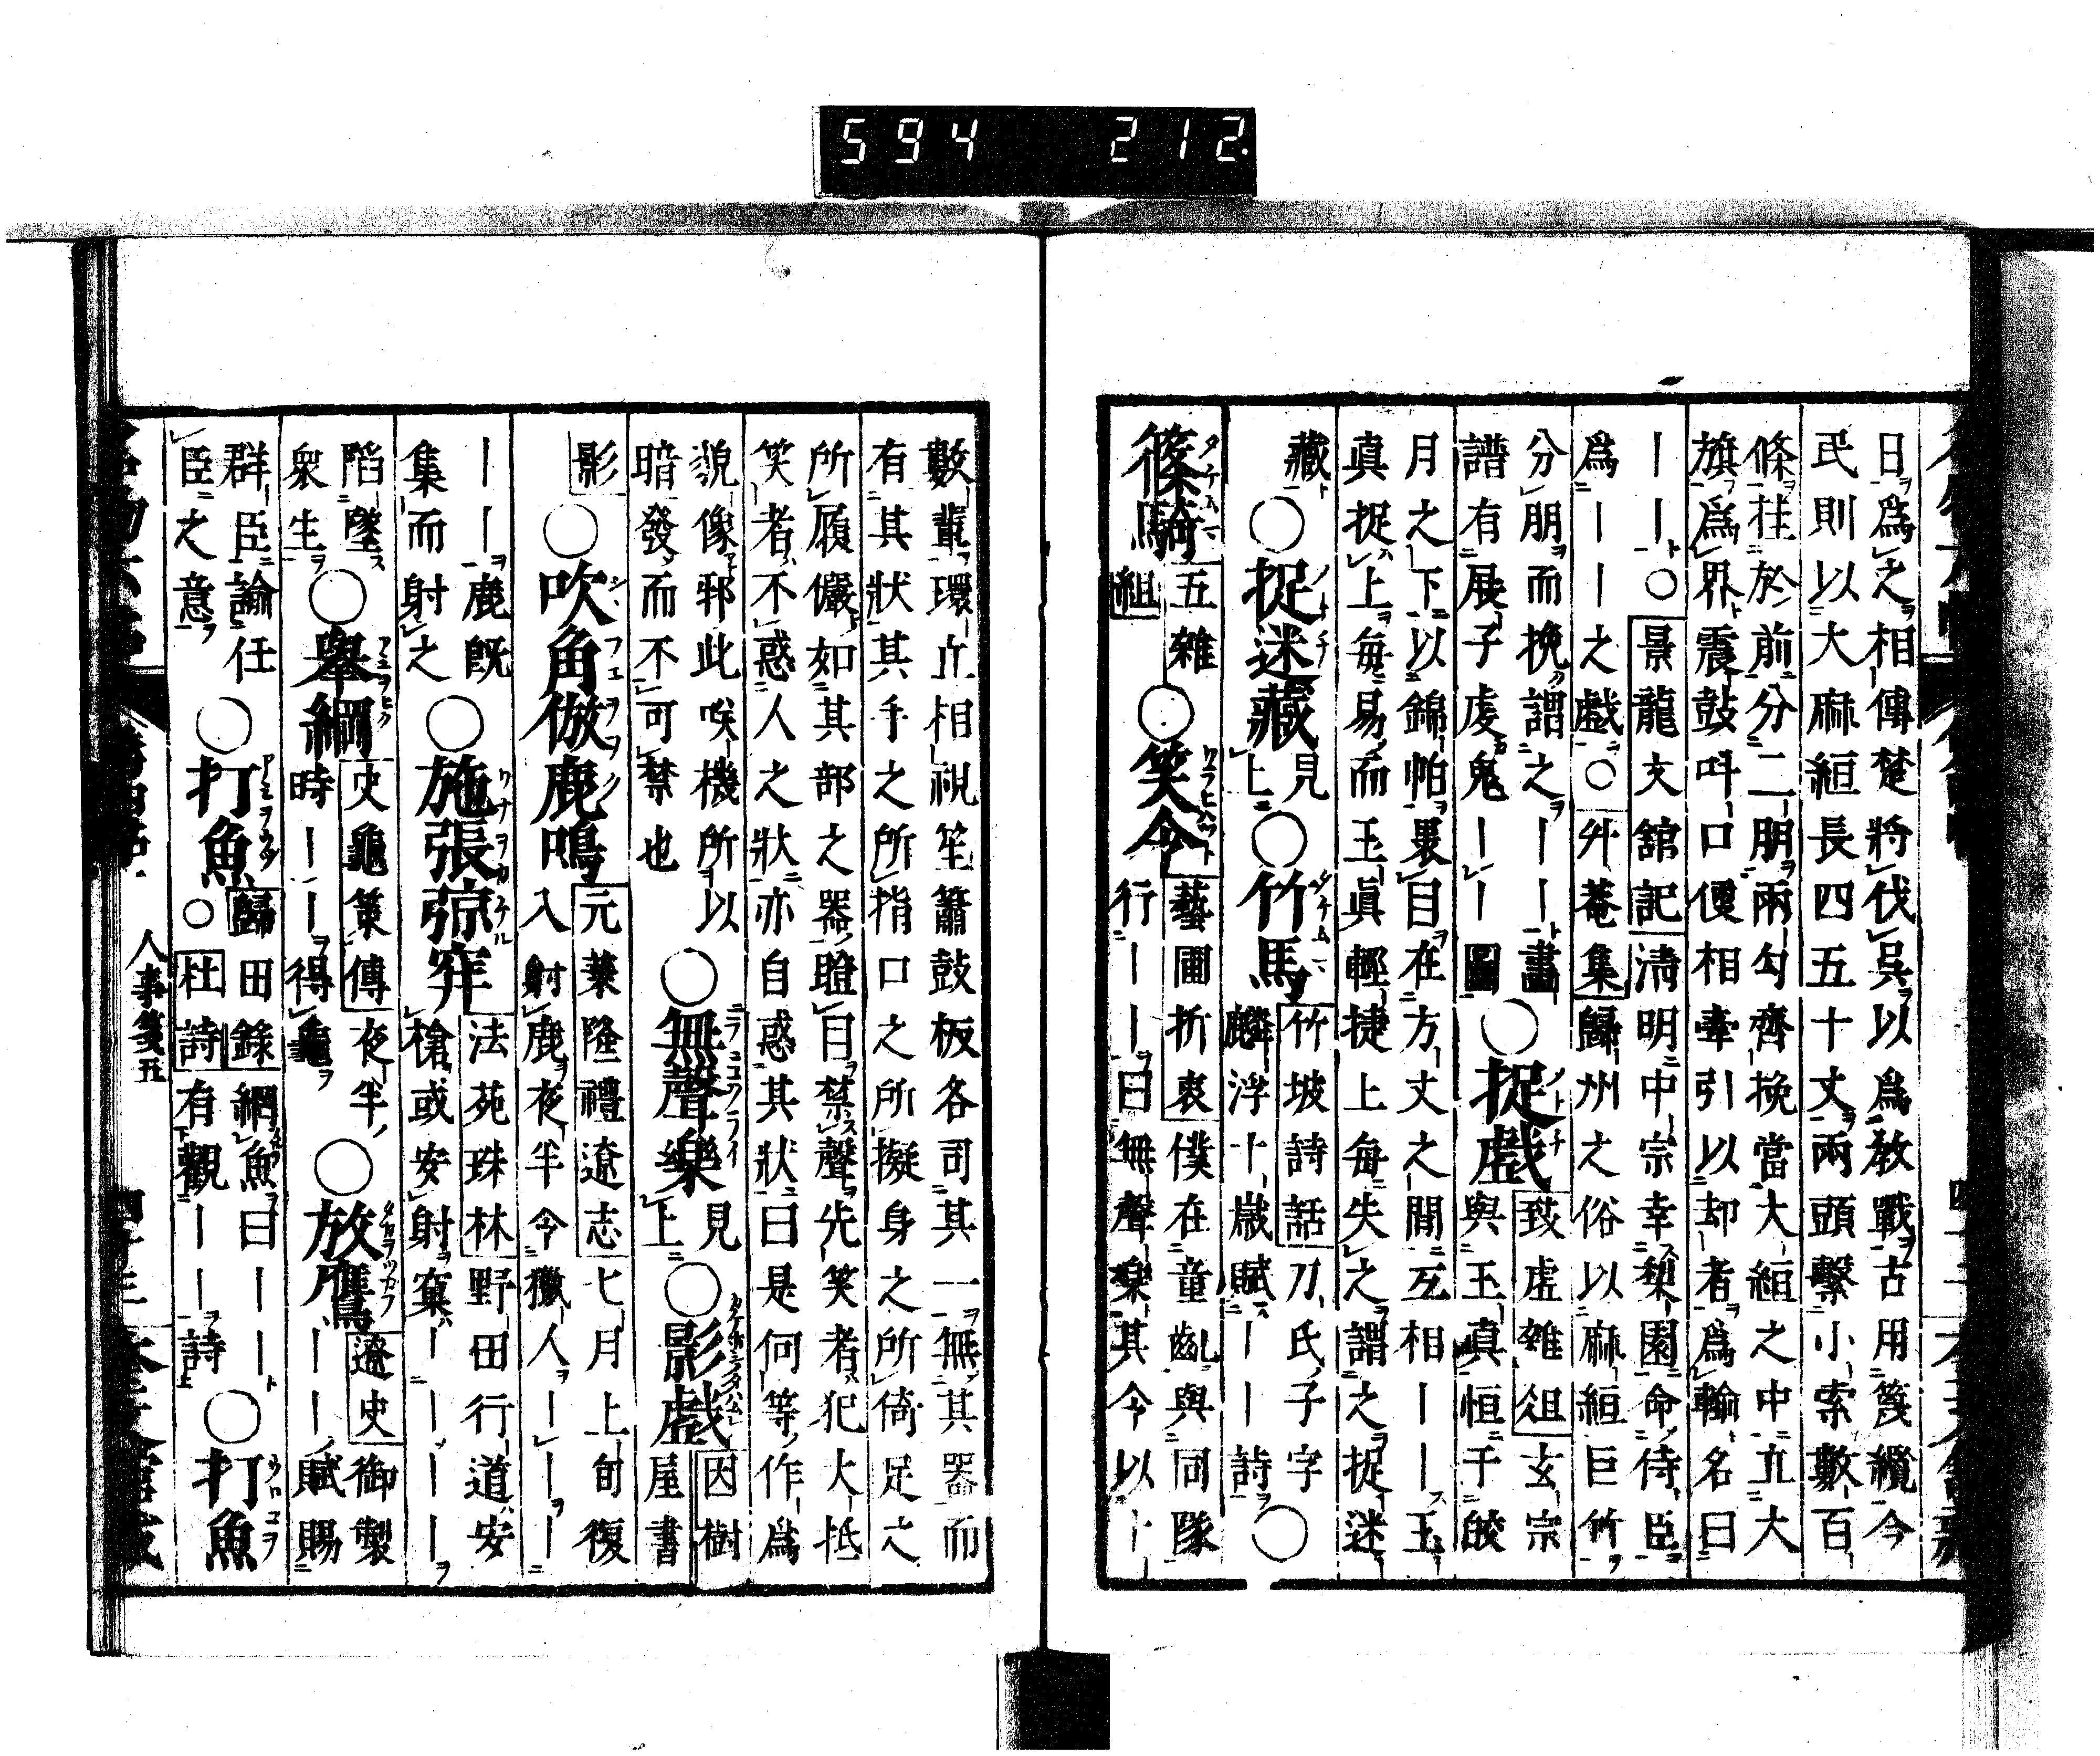 594 212.
日爲之相傳楚將伐呉以爲教戰古用篾纜今
民則以大麻絙長四五十丈兩頭繫小索數百
條挂於前分二朋兩勾齊挽當大絙之中立大
旗爲界震鼓叫口便相牽引以却者爲輸名曰
｜｜○景龍文舘記淸明中宗幸梨園命侍臣
爲｜｜之戲○升菴集歸州之俗以麻絙巨竹
分朋而挽謂之｜｜畫
譜有展子虔鬼｜｜圖
○捉戲
致虚雜俎玄宗
與玉真恒于皎
月之下以錦帕裹目在方丈之間互相｜｜玉
眞捉上每易而玉眞輕捷上每失之謂之捉迷
藏○捉迷藏
見
上
○竹馬
竹坡詩話刀氏子字
麟浮十歳賦｜｜詩
○
篠騎
五雜
組
○笑令
藝圃折衷僕在童齔與同隊
行｜｜曰無聲樂其令以十
數輩環立相視笙簫鼓板各司其一無其器而
有其狀其手之所指口之所擬身之所倚足之
所履儼如其部之器瞪目禁聲先笑者犯大抵
笑者不惑人之狀亦自惑其狀曰是何等作爲
貌像邪此咲機所以
暗發而不可禁也
○無聲樂
見
上
○影戲
因樹
屋書
影○吹角倣鹿鳴
元葉隆禮遼志七月上旬復
入射鹿夜半令獵人｜｜｜
｜｜鹿旣
集而射之
○施張弶穽
法苑珠林野田行道安
槍或安射窠｜｜｜｜
陷墜
衆生
○舉網
史龜策傳夜半
時｜｜得龜
○放鷹
遼史御製
｜｜｜賦賜
群臣諭任
臣之意
○打魚
歸田錄網魚曰｜｜
○杜詩有觀｜｜詩
○打魚
人事箋五